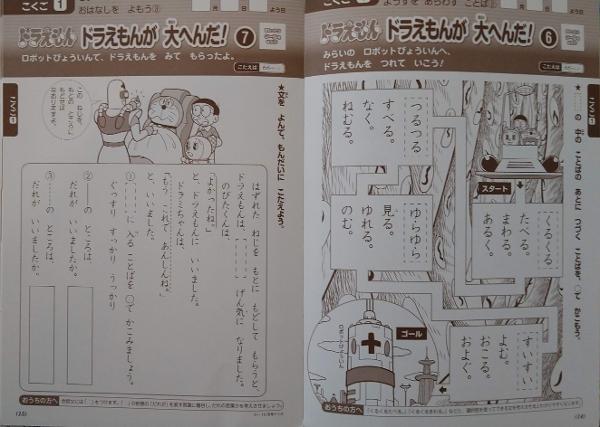 こくご 1
おはなしを よもう③
ドラえもん ドラえもんが 大へんだ! 7
ロボットびょういんで、ドラえもんを みて もらったよ。
こたえは
こくご①
★文を よんで、もんだいに こたえよう。
この ねじを、
もとの ところに
もどせば
なおりますよ。
はずれた ねじを もとに もどして もらうと、
ドラえもんは、 げん気に なりました。
のびたくんは、
「よかったね。」
と、ドラえもんに いいました。
ドラミちゃんは、
「もう、これで あんしんね。」
と、いいました。
① に 入る ことばを ○で かこみましょう。
ぐっすり すっかり うっかり
② の ところは
だれが いいましたか。
③ の ところは
だれが いいましたか。
おうちの方へ
(15)
こくご 1
ようすを あらわす ことば②
ドラえもん ドラえもんが 大へんだ! 6
みらいの ロボットびょういんへ、
ドラえもんを つれて いこう!
こたえは
こくご①
★ の 中の ことばの あとに つづく ことばを、○で かこもう。
スタート
くるくる
たべる。
まわる。
あるく。
つるつる
すべる。
なく。
ねむる。
ゆらゆら
見る。
ゆれる。
のむ。
すいすい
よむ。
おこる。
およぐ。
ゴール
ロボットびょういん
おうちの方へ
(14)